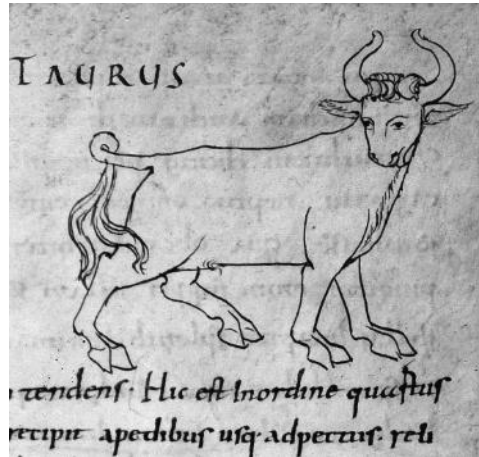 TAURUS
tendens. Hic est Inordine quaestus
apedibus usq. adpectus. reli